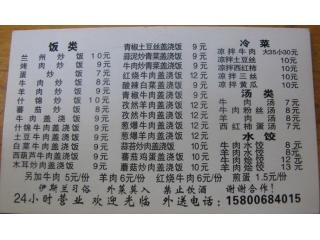 饭类
兰州炒饭 10元
烤肉炒饭 9元
蛋炒饭 7元
牛肉炒饭 8元
羊肉炒饭 9元
什锦炒饭 10元
蕃茄炒饭 8元
牛肉盖浇饭 9元
什锦牛肉盖浇饭 10元
土豆牛肉盖浇饭 9元
白菜牛肉盖浇饭 9元
西葫芦牛肉盖浇饭 9元
木耳牛肉盖浇饭 9元
青椒土豆丝盖浇饭 9元
蒜泥炒青菜盖浇饭 9元
牛肉炒青菜盖浇饭 9元
红烧牛肉盖浇饭 12元
酸辣白菜盖浇饭 9元
青椒牛肉盖浇饭 9元
孜然牛肉盖浇饭 12元
孜然羊肉盖浇饭 12元
葱爆牛肉盖浇饭 12元
葱爆羊肉盖浇饭 12元
蒜苔炒肉盖浇饭 10元
蕃茄鸡蛋盖浇饭 9元
蘑菇牛肉盖浇饭 10元
冷菜
凉拌牛肉 大35小30元
凉拌土豆丝 10元
凉拌西红柿 10元
凉拌三丝 10元
凉拌黄瓜 10元
汤类
牛肉汤 7元
牛肉粉丝汤 8元
羊肉汤 8元
西红柿蛋汤 7元
水饺
牛肉水饺 8元
羊肉水饺 8元
牛肉烩 12元
羊肉烩 13元
另加牛肉5元/份 羊肉6元/份 红烧牛肉6元/份 煎蛋1.5元/份
伊斯兰习俗 外菜莫入 禁止饮酒 谢谢合作!
24小时营业 欢迎光临 外送电话:15800684015